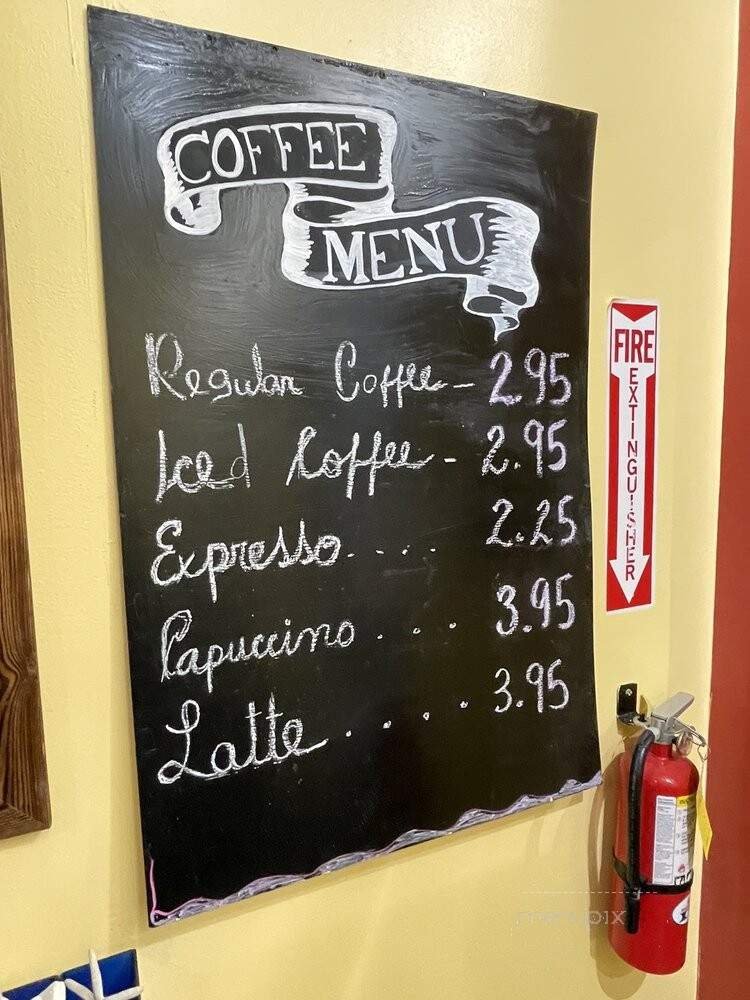 COFFEE
MENU
Regular Coffee - 2.95
Iced Coffee - 2.95
Expresso.... 2.25
Capuccino... 3.95
Latte.... 3.95
FIRE
EXTINGUISHER
menupix